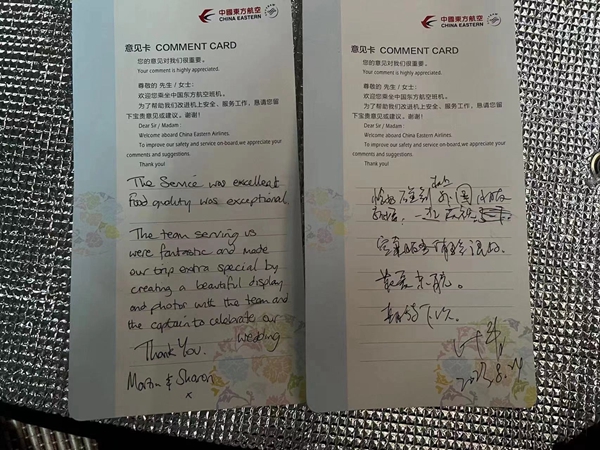 中國東方航空
CHINA EASTERN
意见卡 COMMENT CARD
您的意见对我们很重要。
Your comment is highly appreciated.
尊敬的 先生 / 女士:
欢迎您乘坐中国东方航空班机。
为了帮助我们改进机上安全、服务工作，恳请您留
下宝贵意见或建议。谢谢!
Dear Sir / Madam :
Welcome aboard China Eastern Airlines.
To improve our safety and service on-board,we appreciate your
comments and suggestions.
Thank you!
The Service was excellent
Food quality was exceptional.
The team serving us
were fantastic and made
our trip extra special by
creating a beautiful display
and photos with the team and
the captain to celebrate our
wedding
Thank You.
& Sharon
x
中國東方航空
CHINA EASTERN
意见卡 COMMENT CARD
您的意见对我们很重要。
Your comment is highly appreciated.
尊敬的 先生 / 女士:
欢迎您乘坐中国东方航空班机。
为了帮助我们改进机上安全、服务工作，恳请您留
下宝贵意见或建议。谢谢!
Dear Sir / Madam :
Welcome aboard China Eastern Airlines.
To improve our safety and service on-board,we appreciate your
comments and suggestions.
Thank you!
恰好碰到外国
一起
服务
最爱东航。
期待下次。